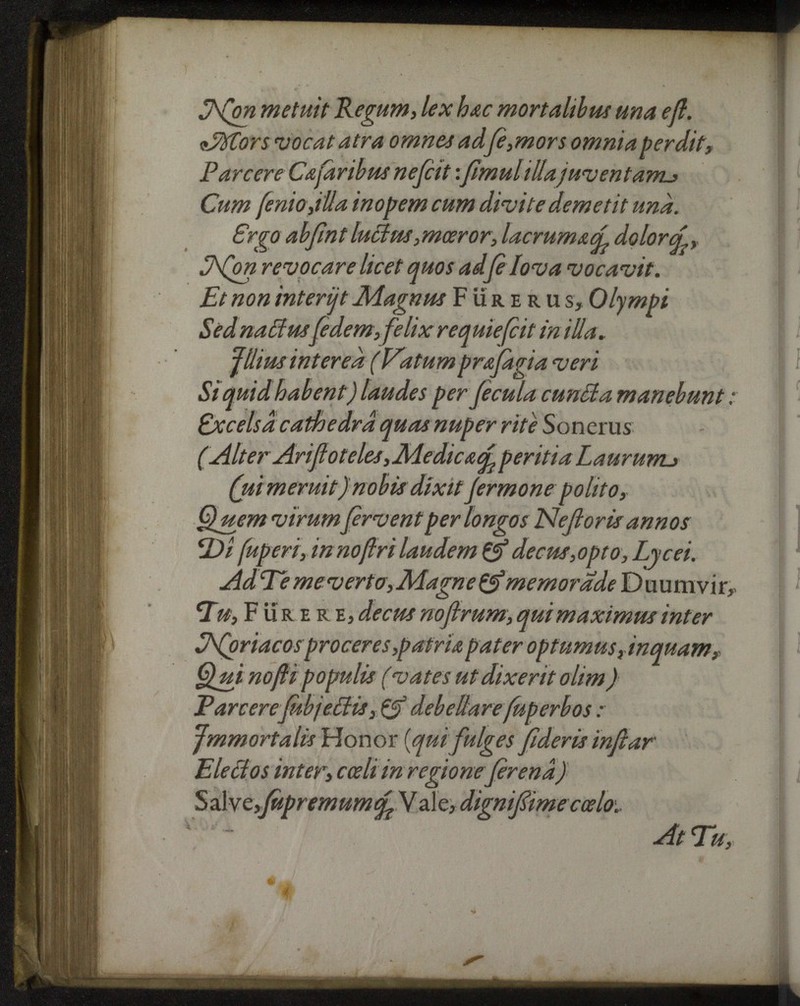 Non metuit Regum, lex hæc mortalibus una eſt.
Mors vocat atra omnes ad ſe, mors omnia perdit,
Parcere Cæſaribus neſcit : ſimul illa juventam
Cum ſenio, illa inopem cum divite demetit unà.
Ergo abſint luctus, mœror, lacrumæq́;, dolorq́;,
Non revocare licet quos ad ſe Iova vocavit.
Et non interijt Magnus FüRERUS, Olympi
Sed nactus ſedem, felix requieſcit in illa.
Illius intereà (Vatum præſagia veri
Si quid habent) laudes per ſecula cuncta manebunt :
Excelsâ cathedrâ quas nuper ritè Sonerus
(Alter Ariſtoteles, Medicæq́; peritia Laurum
Cui meruit) nobis dixit ſermone polito,
Quem virum ſervent per longos Neſtoris annos
Dî ſuperi, in noſtri laudem & decus, opto, Lycei.
Ad Te me verto, Magne & memoráde Duumvir,
Tu, FüRERE, decus noſtrum, qui maximus inter
Noriacos proceres, patriæ pater optumus, inquam,
Qui noſti populis (vates ut dixerit olim)
Parcere ſubjectis, & debellare ſuperbos :
Immortalis Honor (qui fulges ſideris inſtar
Electos inter, cœli in regione ſerenâ)
Salve, ſupremumq́; Vale, digniſſime cœlo.
At Tu,